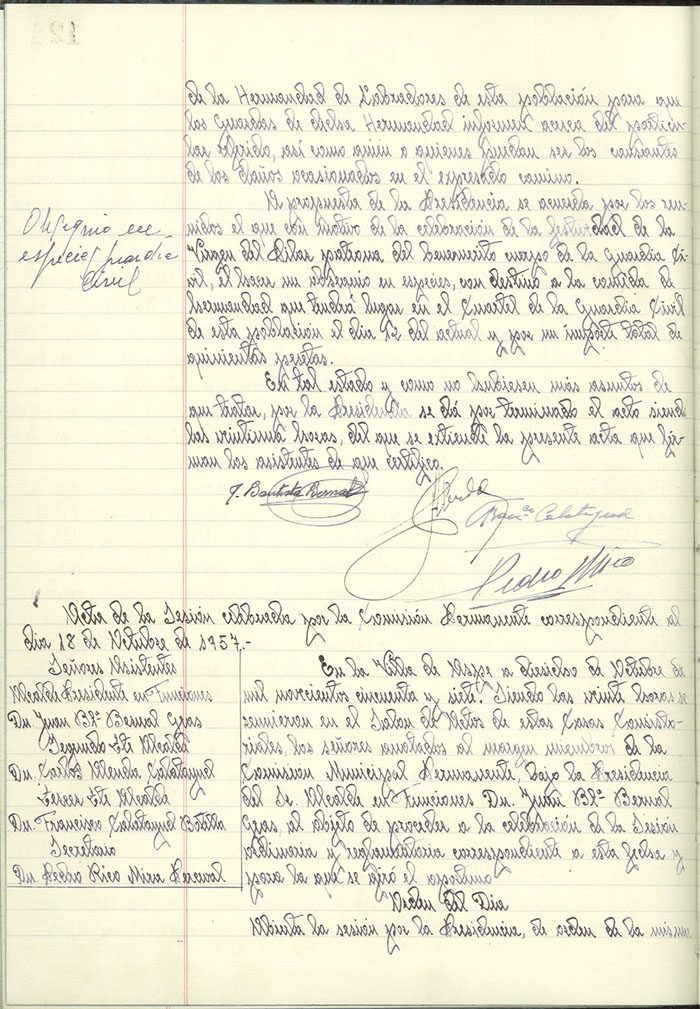 de la Hermandad de Labradores de esta población para que
los Guardas de dicha Hermandad informen acerca del particu-
lar referido, así como quién o quienes puedan ser los causantes
de los daños ocasionados en el expresado camino.
A propuesta de la Presidencia se acuerda por los reu-
nidos el que con motivo de la celebración de la festividad de la
Obsequio en
especies guardia
Civil
Virgen del Pilar patrona del benemérito cuerpo de la Guardia Ci-
vil, el hacer un obsequio en especies, con destino a la comida de
hermandad que tendrá lugar en el Cuartel de la Guardia Civil
de esta población el día 12 del actual y por un importe total de
quinientas pesetas.
En tal estado y como no hubiesen más asuntos de
que tratar, por la Presidencia se dá por terminado el acto siendo
las veintiuna horas, del que se extiende la presente acta que fir-
man los asistentes de que certifico.
J. Bautista Bernal
Calatayud
Pedro Rico
Acta de la Sesión celebrada por la Comisión Permanente correspondiente al
día 18 de Octubre de 1957.-
Señores Asistentes
Alcalde Presidente en Funciones
Dn. Juan Bta. Bernal Gras
Segundo Tte Alcalde
Dn. Carlos Calatayud
Tercer Tte Alcalde
Dn. Francisco Calatayud Botella
Secretario
Dn. Pedro Rico Mira Perceval
En la Villa de Aspe a dieciocho de Octubre de
mil novecientos cincuenta y siete. Siendo las veinte horas se
reunieron en el Salón de Actos de estas Casas Consisto-
riales, los señores anotados al margen miembros de la
Comisión Municipal Permanente, bajo la Presidencia
del Sr. Alcalde en Funciones Dn. Juan Bta. Bernal
Gras, al objeto de proceder a la celebración de la Sesión
ordinaria y reglamentaria correspondiente a esta fecha y
para la que se giró el oportuno
Orden del Día
Abierta la sesión por la Presidencia, de orden de la misma